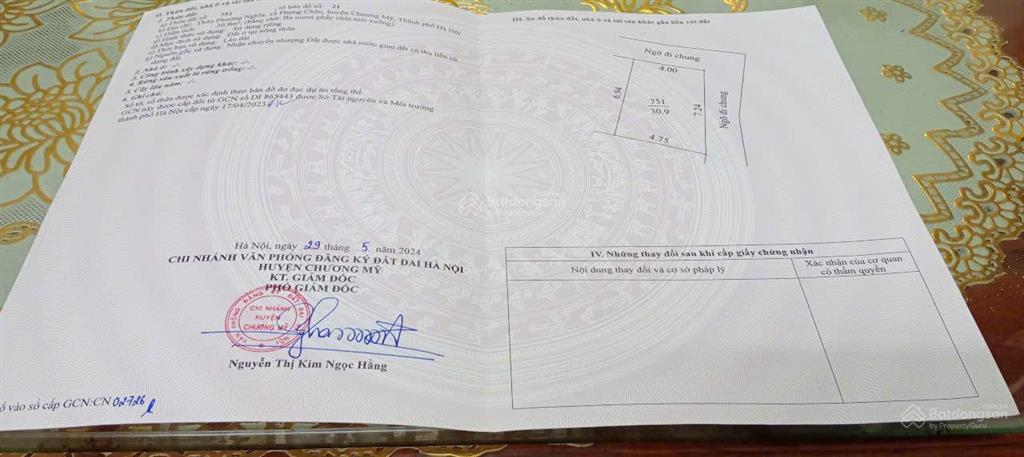 II. Thửa đất, nhà ở và tài sản khác gắn liền với đất
1. Thửa đất:
a) Thửa đất số: 751 b) Tờ bản đồ số: 21
xã Phụng Châu, huyện Chương Mỹ, Thành phố Hà Nội
c) Diện tích: 30.9m², (bằng chữ: Ba mươi phẩy chín mét vuông)
Sử dụng riêng
Đất ở tại nông thôn
Lâu dài
g) Nguồn gốc sử dụng: Nhận chuyển nhượng Đất được nhà nước giao đất có thu tiền sử
dụng đất.
2. Nhà ở: -/-
3. Công trình xây dựng khác: -/-
4. Rừng sản xuất là rừng trồng: -/-
5. Cây lâu năm: -/-
6. Ghi chú:
Số tờ, số thửa được xác định theo bản đồ đo đạc dự án tổng thể.
GCN này được cấp đổi từ GCN số DI 865443 được Sở Tài nguyên và Môi trường
thành phố Hà Nội cấp ngày 17/04/2023
Hà Nội, ngày 29 tháng 5 năm 2024
CHI NHÁNH VĂN PHÒNG ĐĂNG KÝ ĐẤT ĐAI HÀ NỘI
HUYỆN CHƯƠNG MỸ
KT. GIÁM ĐỐC
PHÓ GIÁM ĐỐC
VĂN PHÒNG ĐĂNG KÝ ĐẤT ĐAI
HÀ NỘI
CHI NHÁNH
HUYỆN
CHƯƠNG MỸ
Nguyễn Thị Kim Ngọc Hằng
số vào sổ cấp GCN:CN 02726
III. Sơ đồ thửa đất, nhà ở và tài sản khác gắn liền với đất
Ngõ đi chung
4.00
6.94
751
30.9
7.24
4.75
Ngõ đi chung
IV. Những thay đổi sau khi cấp giấy chứng nhận
Nội dung thay đổi và cơ sở pháp lý
Xác nhận của cơ quan
có thẩm quyền
Batdongsan
by PropertyGuru
Batdongsan
by PropertyGuru